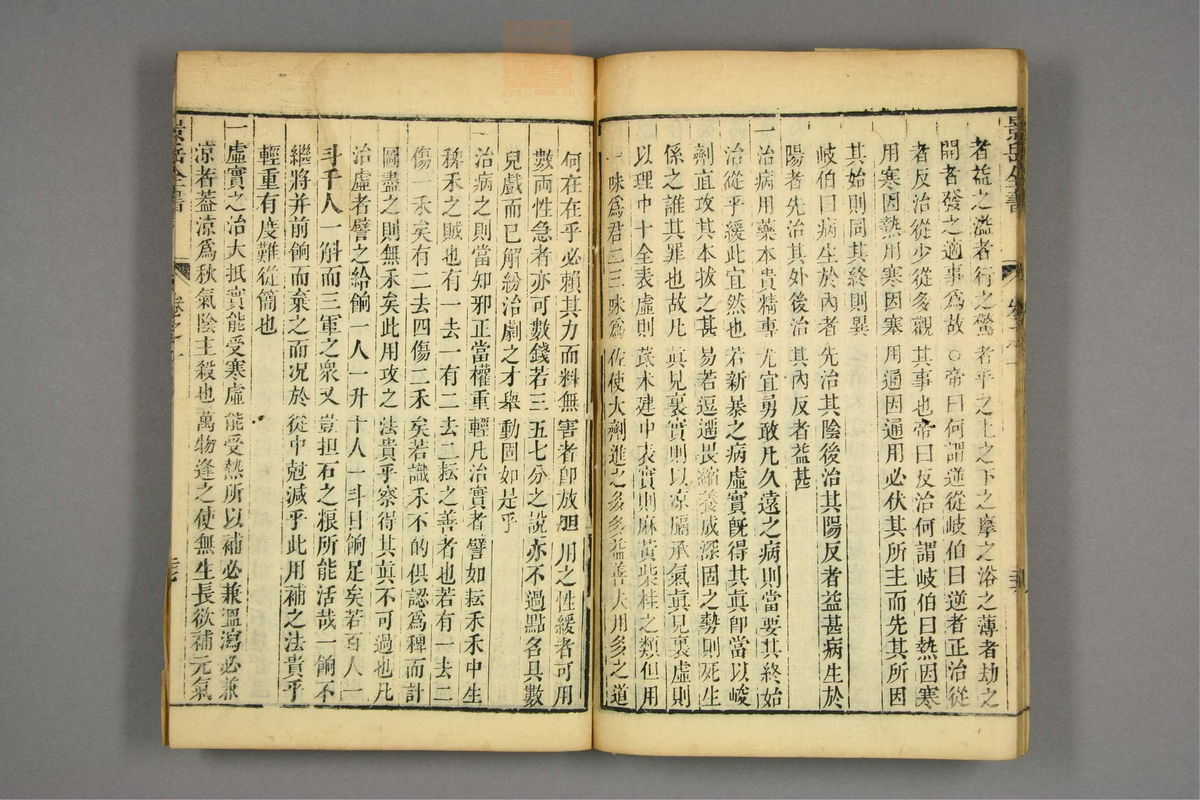 者益之溢者行之驚者平之上之下之摩之浴之薄者劫之
開者發之適事爲故○帝曰何謂逆從岐伯曰逆者正治從
者反治從少從多觀其事也帝曰反治何謂岐伯曰熱因寒
用寒因熱用寒因寒用通因通用必伏其所主而先其所因
其始則同其終則異
岐伯曰病生於內者先治其陰後治其陽反者益甚病生於
陽者先治其外後治其內反者益甚
一治病用藥本貴精專尤宜勇敢凡久遠之病則當要其終始
治從乎緩此宜然也若新暴之病虛實旣得其眞卽當以峻
劑直攻其本拔之甚易若逗遛畏縮養成深固之勢則死生
係之誰其罪也故凡眞見裏實則以凉膈承氣眞見裏虛則
以理中十全表虛則芪朮建中表實則麻黃柴桂之類但用
一味爲君二三味爲佐使大劑進之多多益善夫用多之道
何在在乎必賴其力而料無害者卽放胆用之性緩者可用
數兩性急者亦可數錢若三五七分之說亦不過點名具數
兒戲而已解紛治劇之才舉動固如是乎
一治病之則當知邪正當權重輕凡治實者譬如耘禾禾中生
稗禾之賊也有一去一有二去二耘之善者也若有一去二
傷一禾矣有二去四傷二禾矣若識禾不的俱認爲稗而計
圖盡之則無禾矣此用攻之法貴乎察得其眞不可過也凡
治虛者譬之給餉一人一升十人一斗日餉足矣若百人一
斗千人一斛而三軍之衆又豈担石之糧所能活哉一餉不
繼將并前餉而棄之而况於從中尅減乎此用補之法貴乎
輕重有度難從簡也
一虛實之治大抵實能受寒虛能受熱所以補必兼溫瀉必兼
凉者葢凉爲秋氣陰主殺也萬物逢之便無生長欲補元氣
景岳全書